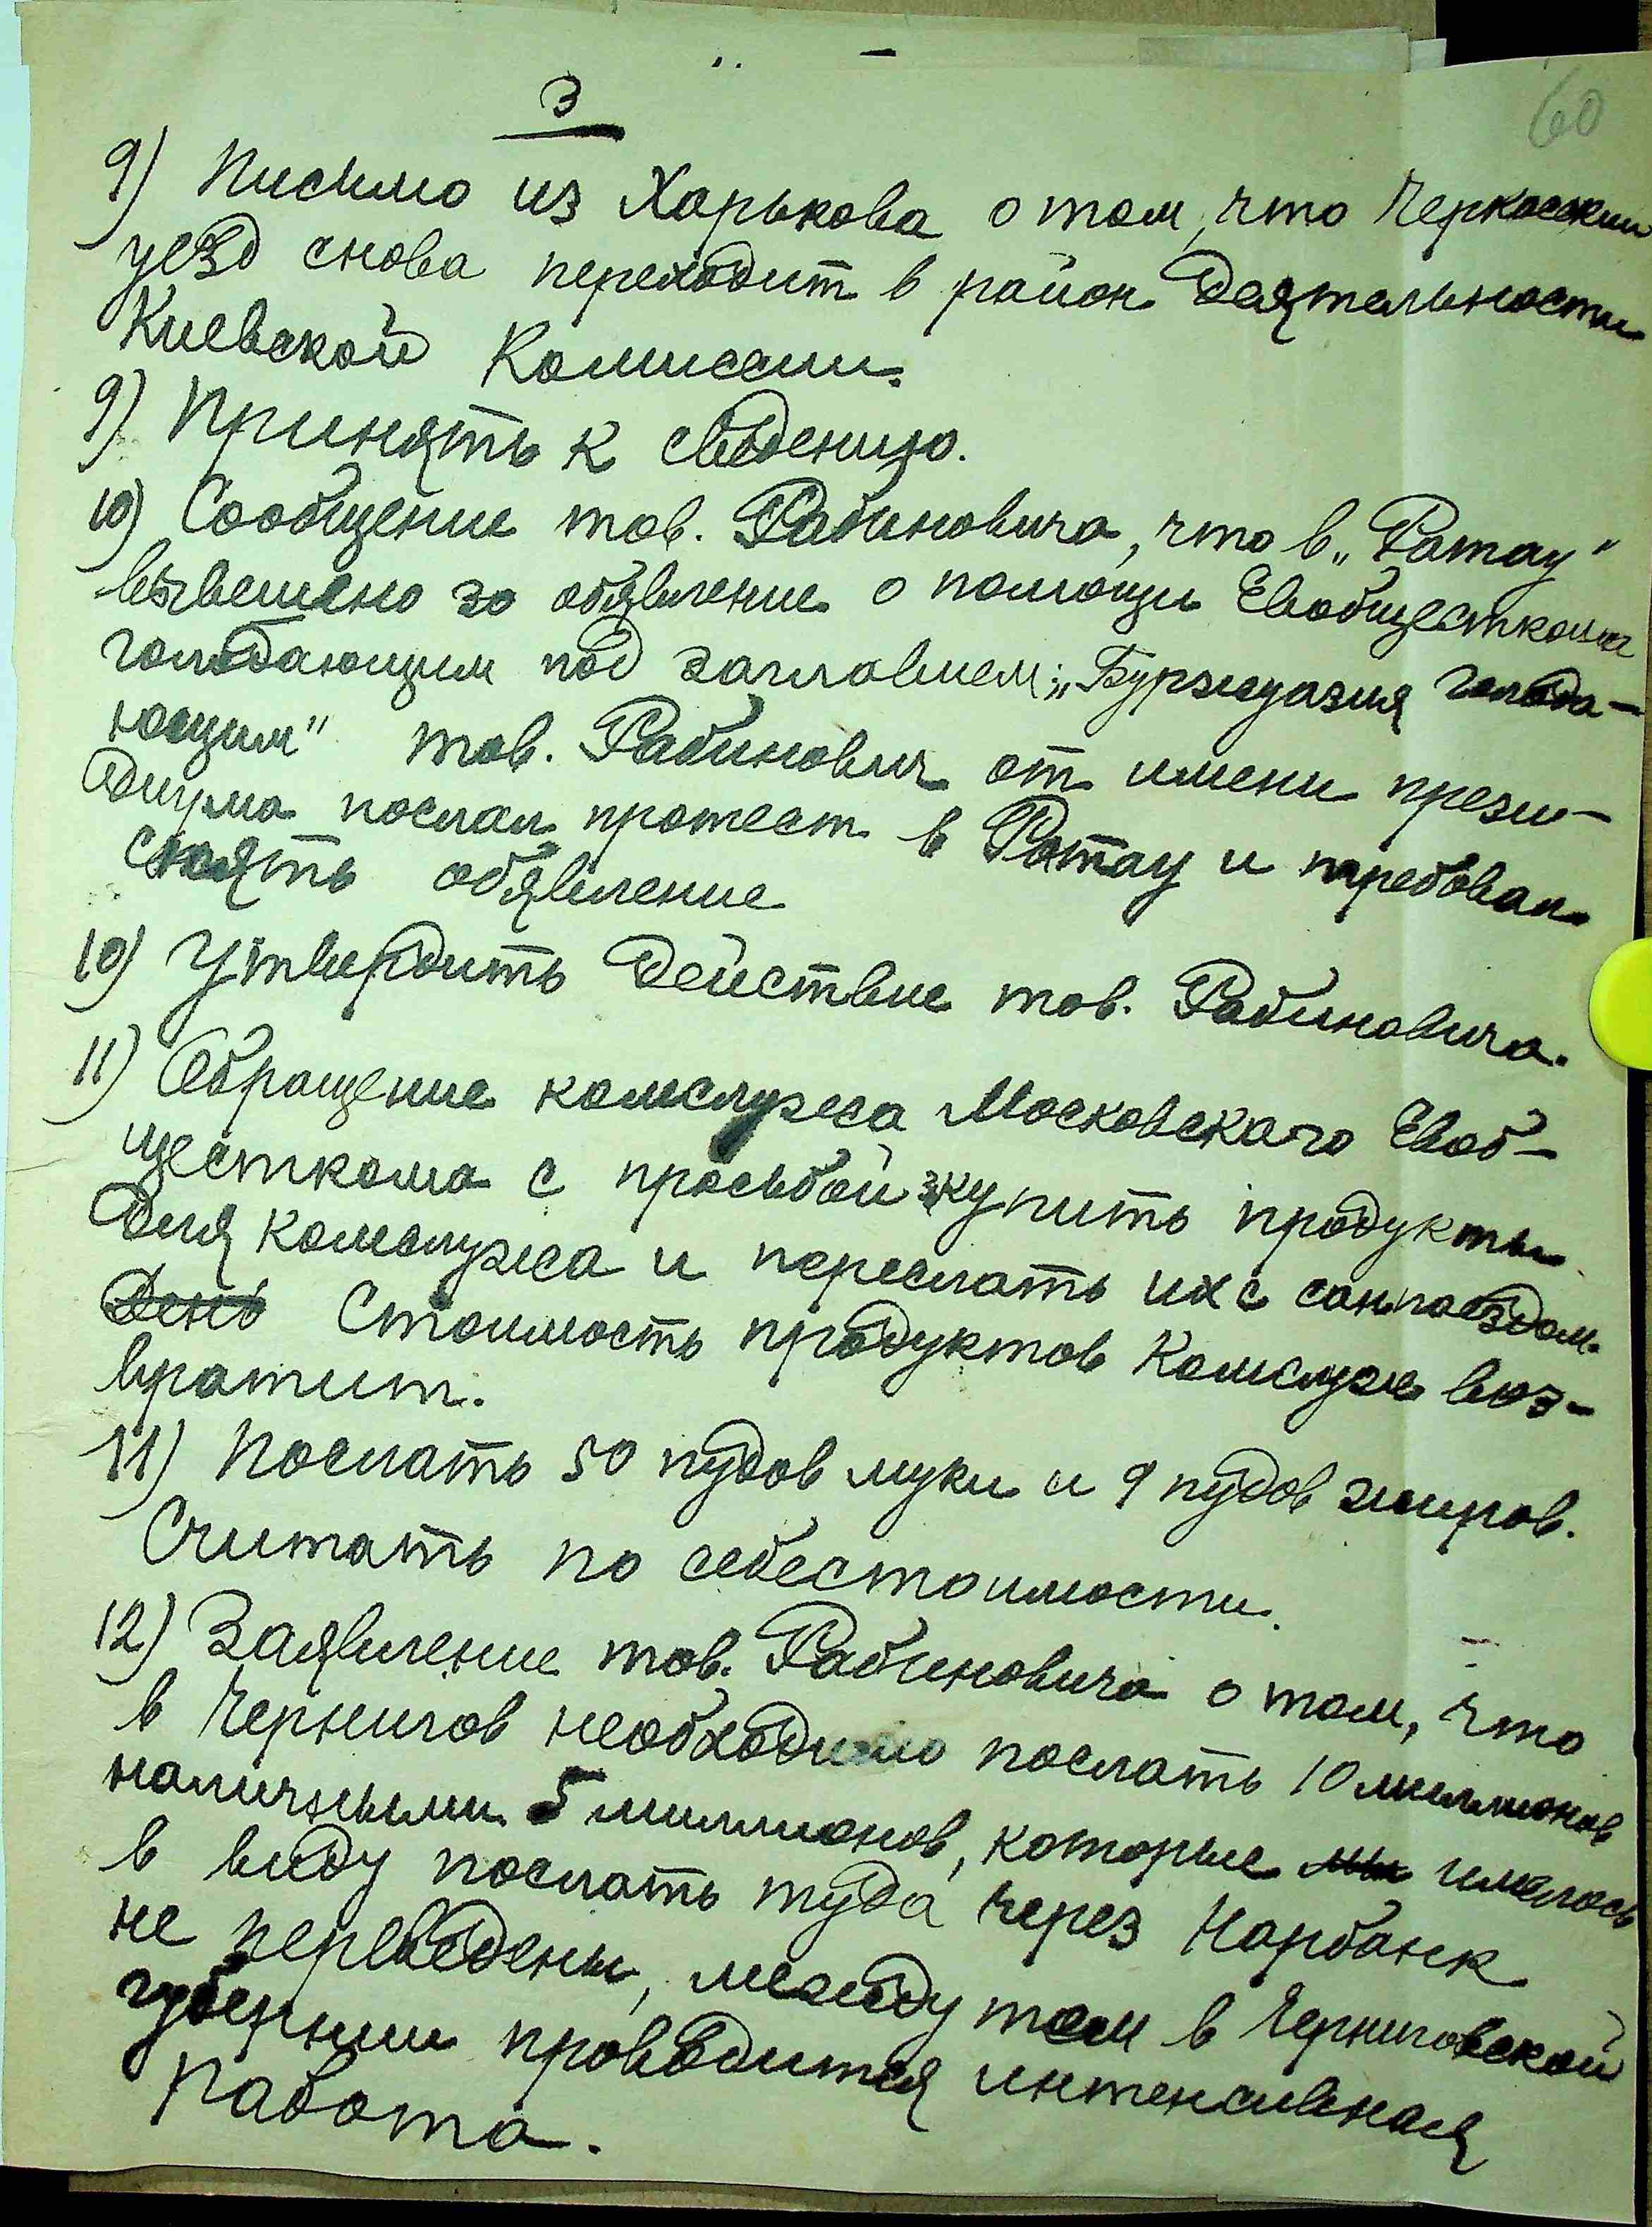 3
60
9) Письмо из Харькова о том, что Черкасский
уезд снова переходит в район деятельности
Киевской Комиссии.
9) Принять к сведению.
10) Сообщение тов. Рабиновича, что в „Ратау"
вывешено за объявление о помощи Евобщесткома
голодающим под заглавием: „Буржуазия голода-
ющим" тов. Рабинович от имени прези-
диума послал протест в Ратау и требовал
снять обявление
10) Утвердить действие тов. Рабиновича.
11) Обращение комслужа Московскаго Евоб-
щесткома с просьбой закупить продукты
для комслужа и переслать их с санпоездом.
День Стоимость продуктов Комслуж воз-
вратит.
11) Послать 50 пудов муки и 9 пудов жиров.
Считать по себестоимости.
12) Заявление тов. Рабиновича о том, что
в Чернигов необходимо послать 10 миллионов
наличными 5 миллионов, которые мы имелось
в виду послать туда через Нарбанк
не переведены, между тем в Черниговской
губернии проводится интенсивная
работа.